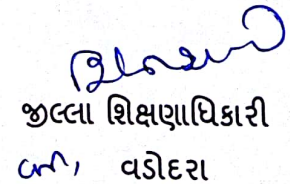 જીલ્લા શિક્ષણાધિકારી
વડોદરા